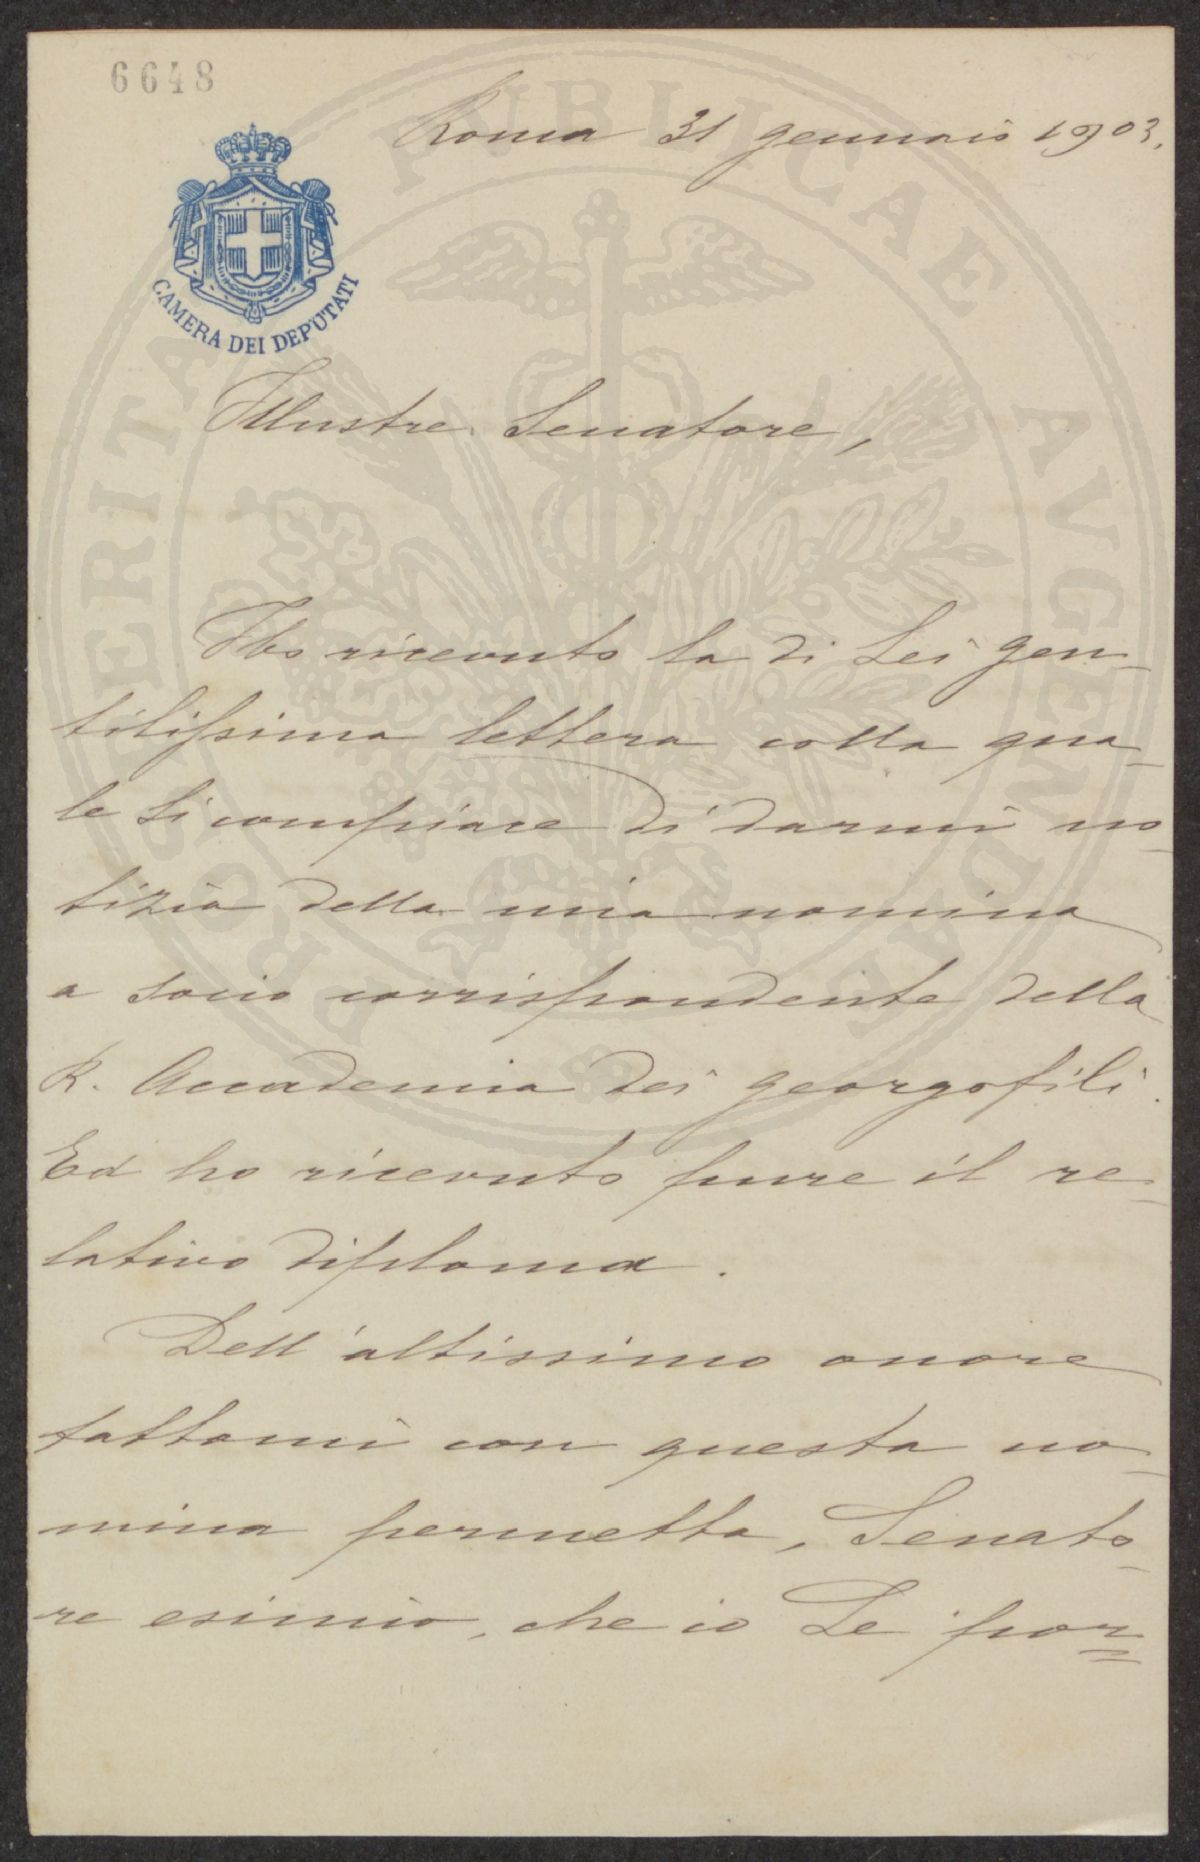 6648
Roma 31 gennaio 1903.
CAMERA DEI DEPUTATI
PROSPERITATI PUBLICAE AUGENDAE
Illustre Senatore,
Ho ricevuto la di Lei gen-
tilissima lettera colla qua-
le si compiace di darmi no-
tizia della mia nomina
a socio corrispondente della
R. Accademia dei georgofili.
Ed ho ricevuto pure il re-
lativo diploma.
Dell'altissimo onore
fattomi con questa no-
mina permetta, Senato-
re esimio, che io Le por-